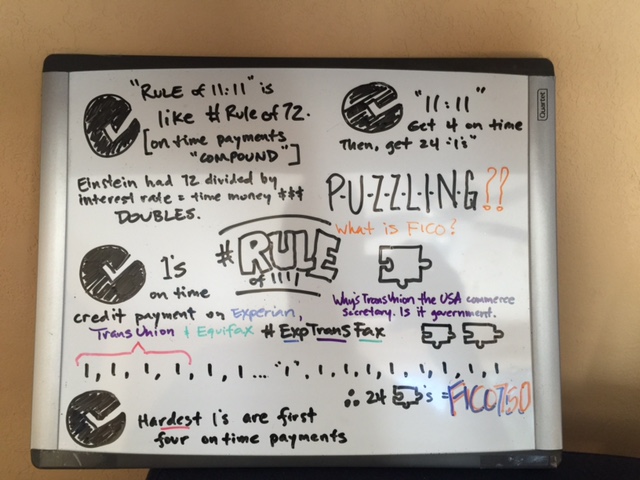 "RULE of 11:11" is
like # Rule of 72.
[on time payments
"COMPOUND"]
"11:11"
Get 4 on time
Then, get 24 "1's"
Einstein had 72 divided by
interest rate = time money $$$
DOUBLES.
P-U-Z-Z-L-I-N-G??
What is FICO?
#RULE
of 1111
1's
on time
credit payment on Experian,
TransUnion & Equifax # ExpTransFax
Why's TransUnion the USA commerce
secretary. Is it government.
1, 1, 1, 1, 1, 1, 1... "1", 1, 1, 1, 1, 1, 1, 1, 1, 1
∴ 24 's = FICO750
Hardest 1's are first
four on time payments
Quartet